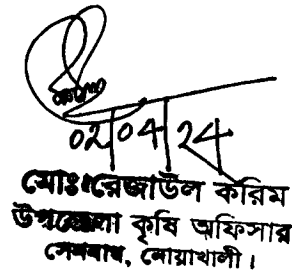 ০২/০৭/২৪
মোঃ রেজাউল করিম
উপজেলা কৃষি অফিসার
সেনবাগ, নোয়াখালী।